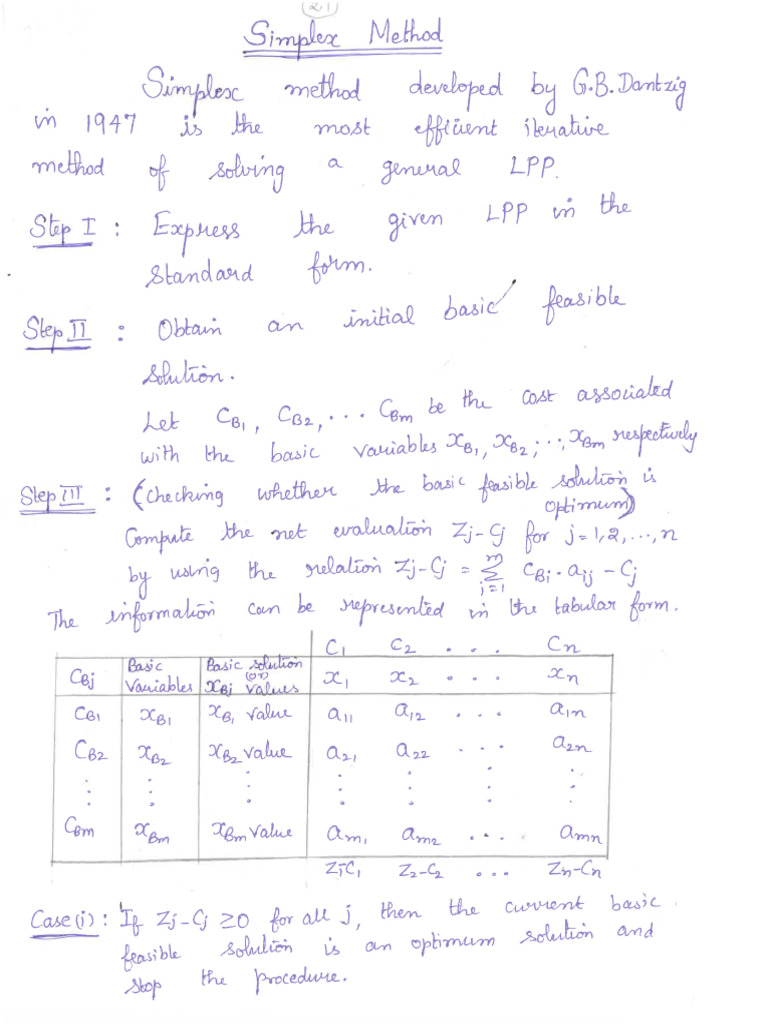 (21)
Simplex Method
Simplex method developed by G.B.Dantzig
in 1947 is the most efficient iterative
method of solving a general LPP.
Step I : Express the given LPP in the
standard form.
Step II : Obtain an initial basic feasible
solution.
Let CB1, CB2, ... CBm be the cost associated
with the basic variables xB1, xB2, ..., xBm respectively
Step III : (Checking whether the basic feasible solution is
optimum)
Compute the net evaluation Zj-Cj for j=1,2,...,n
by using the relation Zj-Cj = Σ_{i=1}^{m} CBi · aij - Cj
The information can be represented in the tabular form.
C1 C2 ... Cn
CBj Basic Variables Basic solution (or) xBj values x1 x2 ... xn
CB1 xB1 xB1 value a11 a12 ... a1n
CB2 xB2 xB2 value a21 a22 ... a2n
⋮ ⋮ ⋮ ⋮ ⋮ ⋮ ⋮
CBm xBm xBm value am1 am2 ... amn
Z1-C1 Z2-C2 ... Zn-Cn
Case(i) : If Zj-Cj ≥0 for all j, then the current basic
feasible solution is an optimum solution and
stop the procedure.